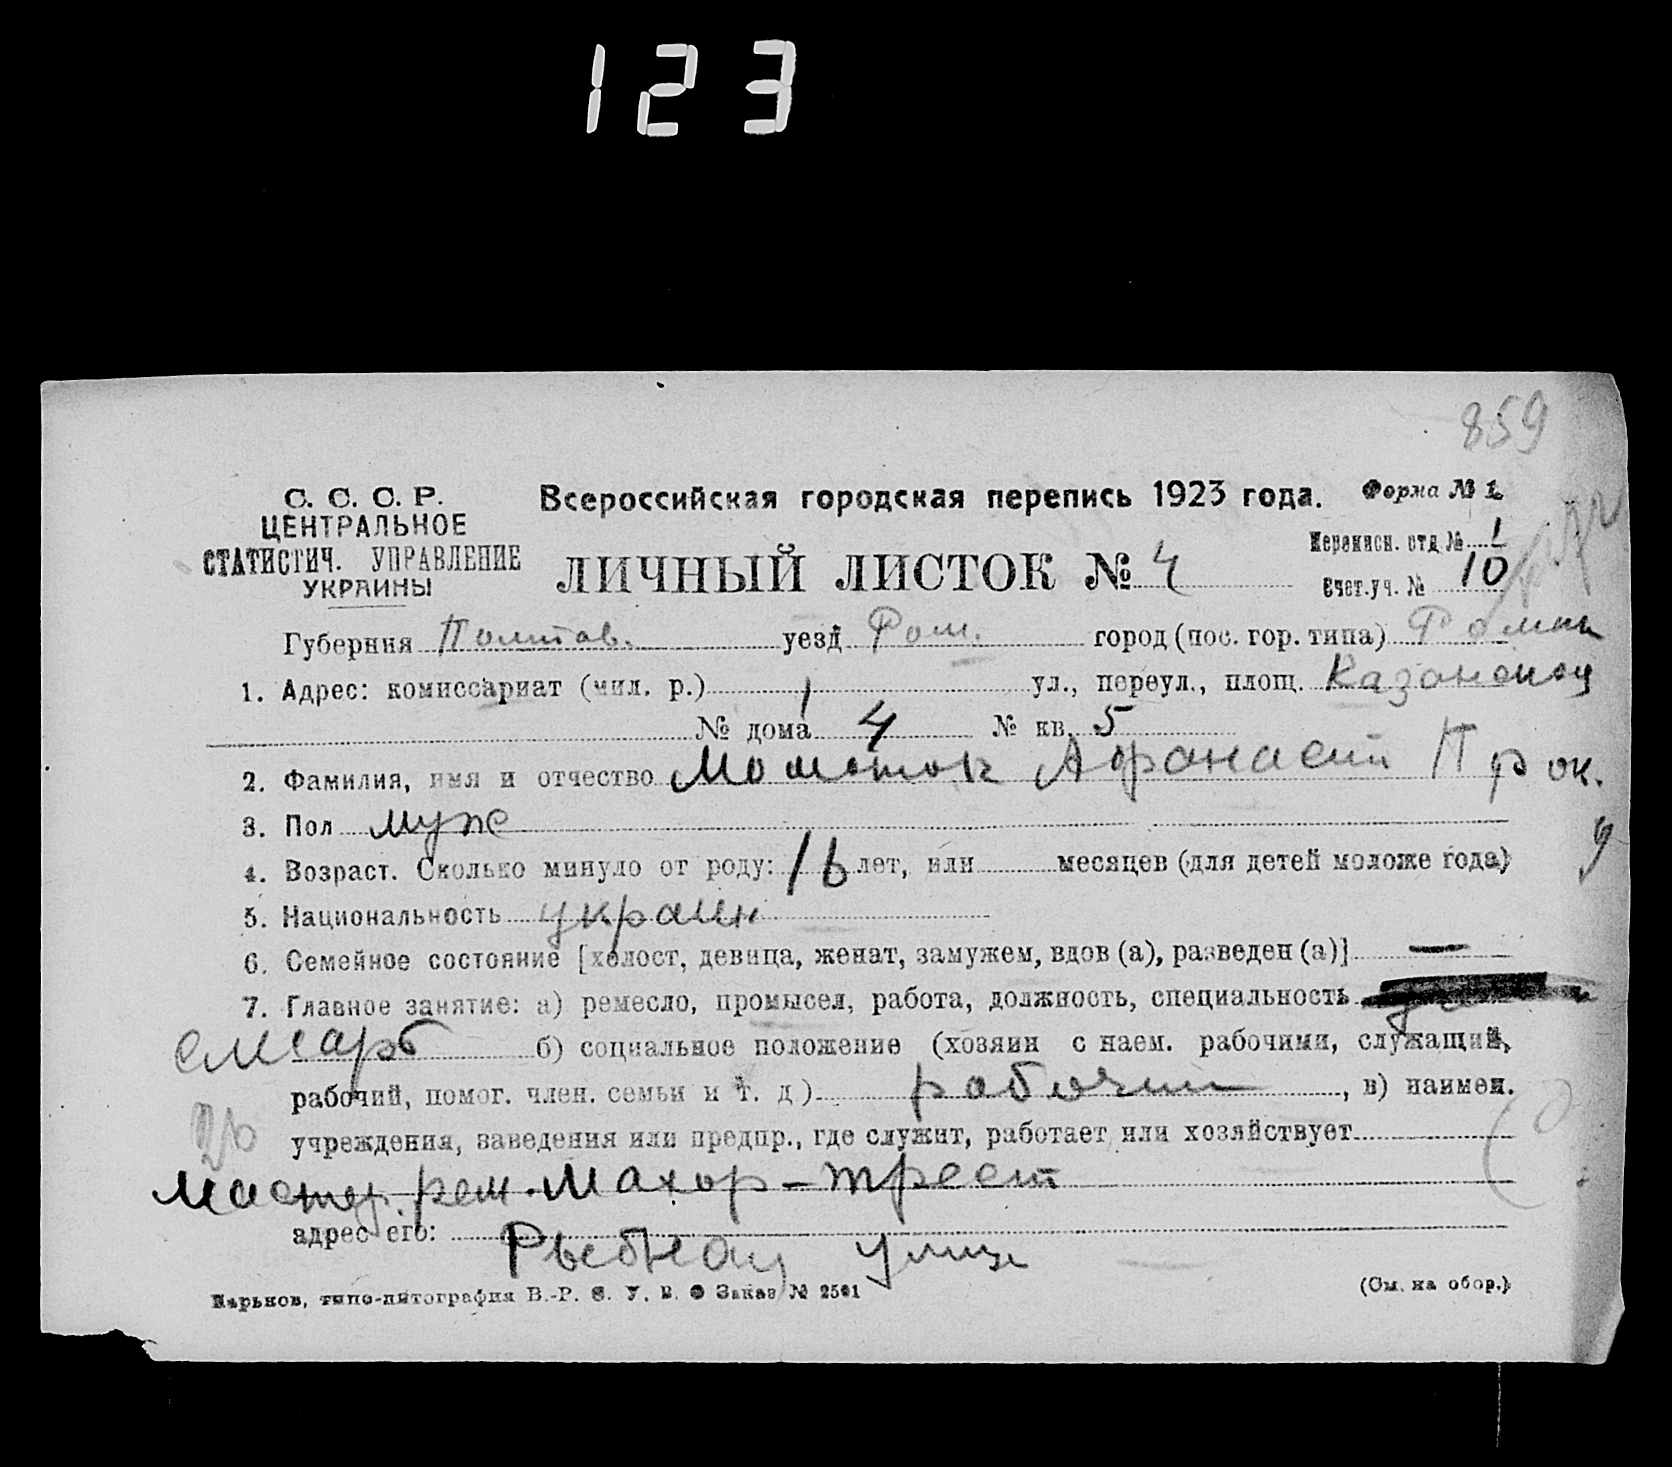 123
859
С. С. С. Р.
ЦЕНТРАЛЬНОЕ
СТАТИСТИЧ. УПРАВЛЕНИЕ
УКРАИНЫ
Всероссийская городская перепись 1923 года. Форма № 1.
ЛИЧНЫЙ ЛИСТОК № 4
Переписн. отд. № 1
Счет. уч. № 10
Губерния Полтав. уезд Ром. город (пос. гор. типа) Ромны
1. Адрес: комиссариат (мил. р.) 1 ул., переул., площ. Казанской
№ дома 4 № кв. 5
2. Фамилия, имя и отчество Момоток Афанасий Прок.
3. Пол муж
4. Возраст. Сколько минуло от роду: 16 лет, или месяцев (для детей моложе года) 9
5. Национальность украин
6. Семейное состояние [холост, девица, женат, замужем, вдов (а), разведен (а)] —
7. Главное занятие: а) ремесло, промысел, работа, должность, специальность
б) социальное положение (хозяин с наем. рабочими, служащий,
рабочий, помог. член. семьи и т. д.) рабочий, в) наимен.
учреждения, заведения или предпр., где служит, работает или хозяйствует
Мастер. рем. Махор-трест
адрес его: улице
Харьков, типо-литография В.-Р. S. У. В. Заказ № 2501 (См. на обор.)